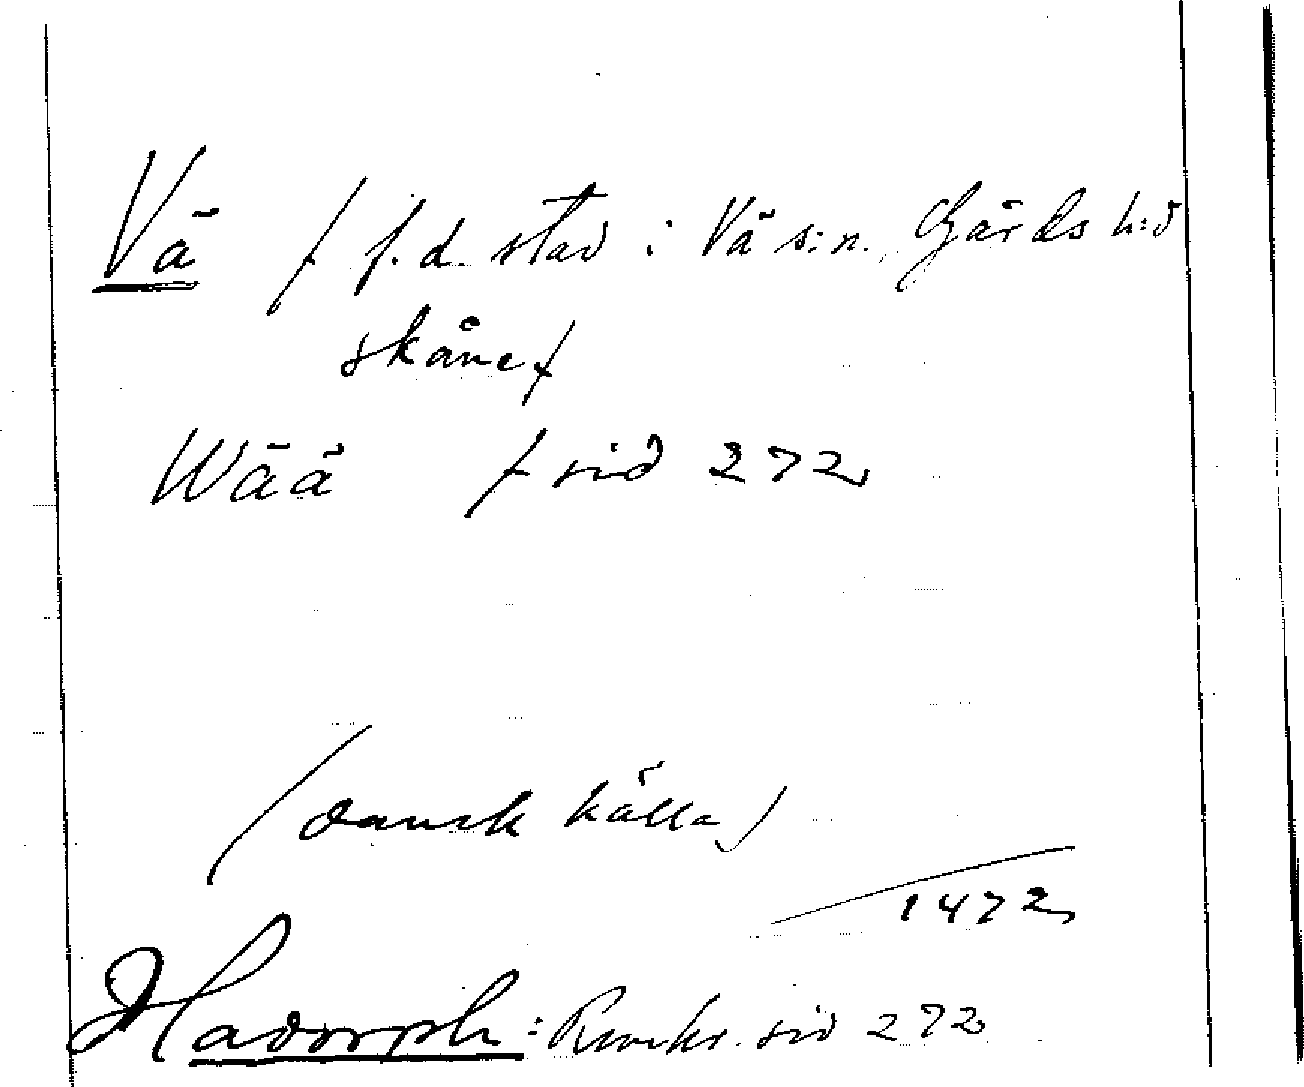 Vä / f.d. stad i Vä s:n., Gärds h:d
Skåne/
Wää / sid 272
/dansk källa/
1472
Hadorph: Rimkr. sid 272